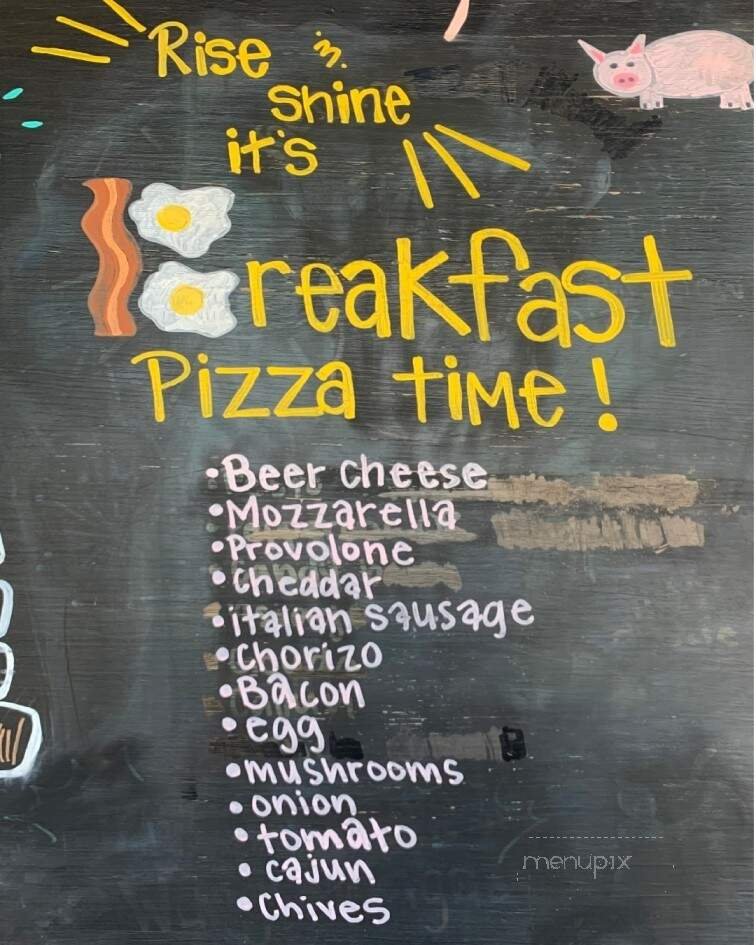 Rise &
shine
it's
Breakfast
Pizza time!
•Beer cheese
•Mozzarella
•Provolone
•cheddar
•italian sausage
•Chorizo
•Bacon
•egg
•mushrooms
•onion
•tomato
•cajun
•Chives
menupix